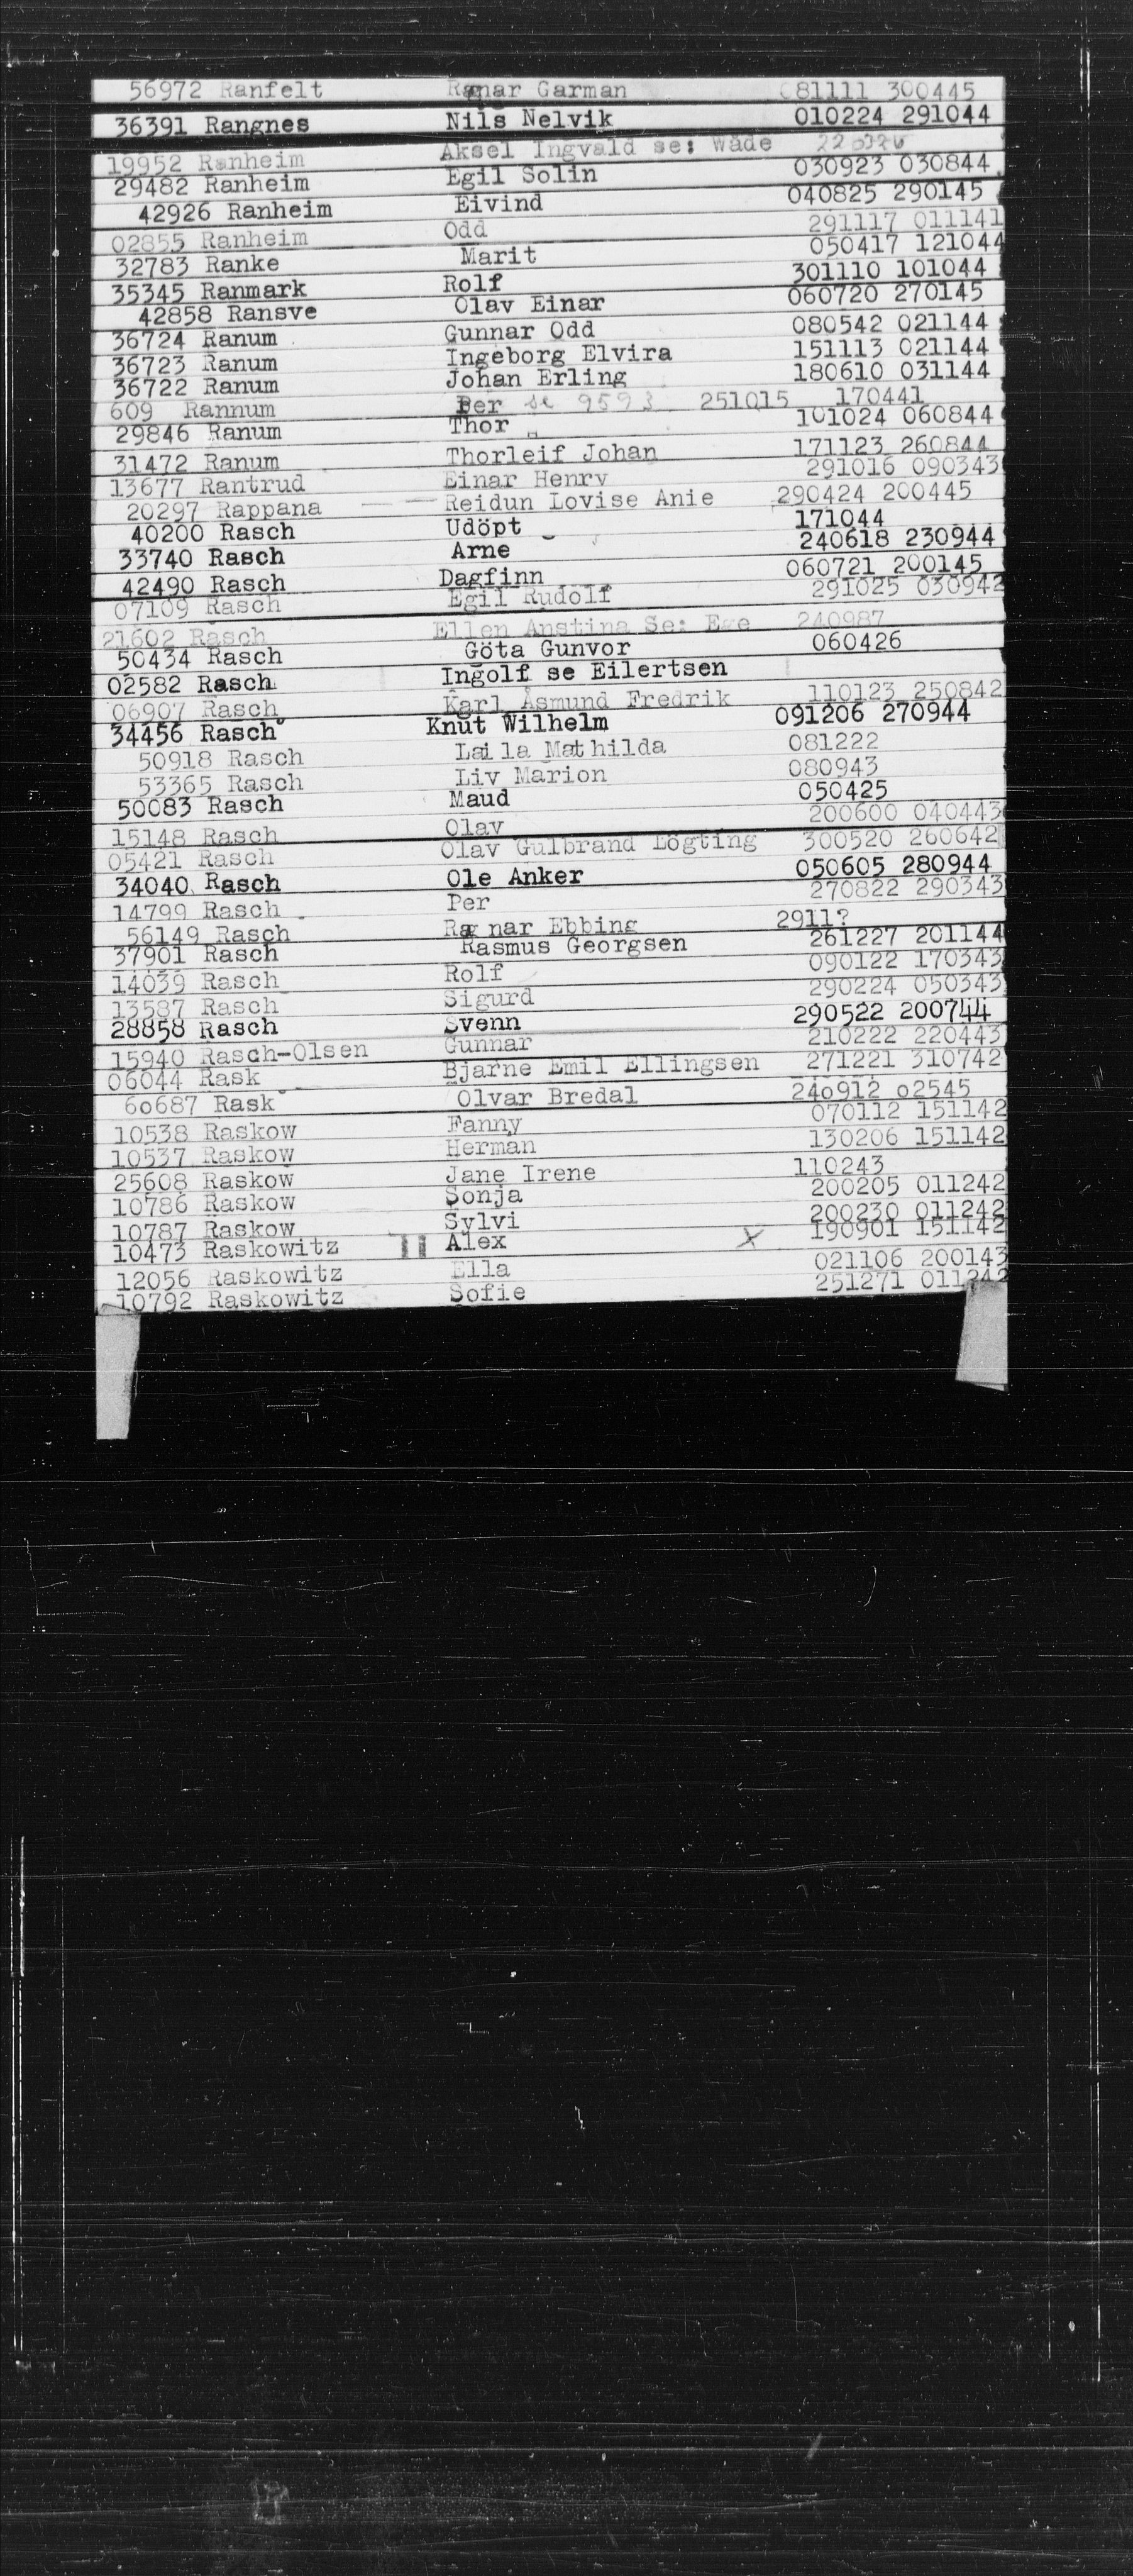 56972 Ranfelt Ragnar Garman 081111 300445
36391 Rangnes Nils Nelvik 010224 291044
19952 Ranheim Aksel Ingvald se: Wade
29482 Ranheim Egil Solin 030923 030844
42926 Ranheim Eivind 040825 290145
02855 Ranheim Odd 291117 011141
32783 Ranke Marit 050417 121044
35345 Ranmark Rolf 301110 101044
42858 Ransve Olav Einar 060720 270145
36724 Ranum Gunnar Odd 080542 021144
36723 Ranum Ingeborg Elvira 151113 021144
36722 Ranum Johan Erling 180610 031144
609 Rannum Per se 9593 251015 170441
29846 Ranum Thor 101024 060844
31472 Ranum Thorleif Johan 171123 260844
13677 Rantrud Einar Henry 291016 090343
20297 Rappana Reidun Lovise Anie 290424 200445
40200 Rasch Udöpt 171044
33740 Rasch Arne 240618 230944
42490 Rasch Dagfinn 060721 200145
07109 Rasch Egil Rudolf 291025 030942
21602 Rasch Ellen Anstina Se: Ege 240987
50434 Rasch Göta Gunvor 060426
02582 Rasch Ingolf se Eilertsen
06907 Rasch Karl Asmund Fredrik 110123 250842
34456 Rasch Knut Wilhelm 091206 270944
50918 Rasch Laila Mathilda 081222
53365 Rasch Liv Marion 080943
50083 Rasch Maud 050425
15148 Rasch Olav 200600 040443
05421 Rasch Olav Gulbrand Lögting 300520 260642
34040 Rasch Ole Anker 050605 280944
14799 Rasch Per 270822 290343
56149 Rasch Ragnar Ebbing 2911?
37901 Rasch Rasmus Georgsen 261227 201144
14039 Rasch Rolf 090122 170343
13587 Rasch Sigurd 290224 050343
28858 Rasch Svenn 290522 200744
15940 Rasch-Olsen Gunnar 210222 220443
06044 Rask Bjarne Emil Ellingsen 271221 310742
60687 Rask Olvar Bredal 240912 02545
10538 Raskow Fanny 070112 151142
10537 Raskow Herman 130206 151142
25608 Raskow Jane Irene 110243
10786 Raskow Sonja 200205 011242
10787 Raskow Sylvi 200230 011242
10473 Raskowitz Alex X 190901 151142
12056 Raskowitz Ella 021106 200143
10792 Raskowitz Sofie 251271 011242